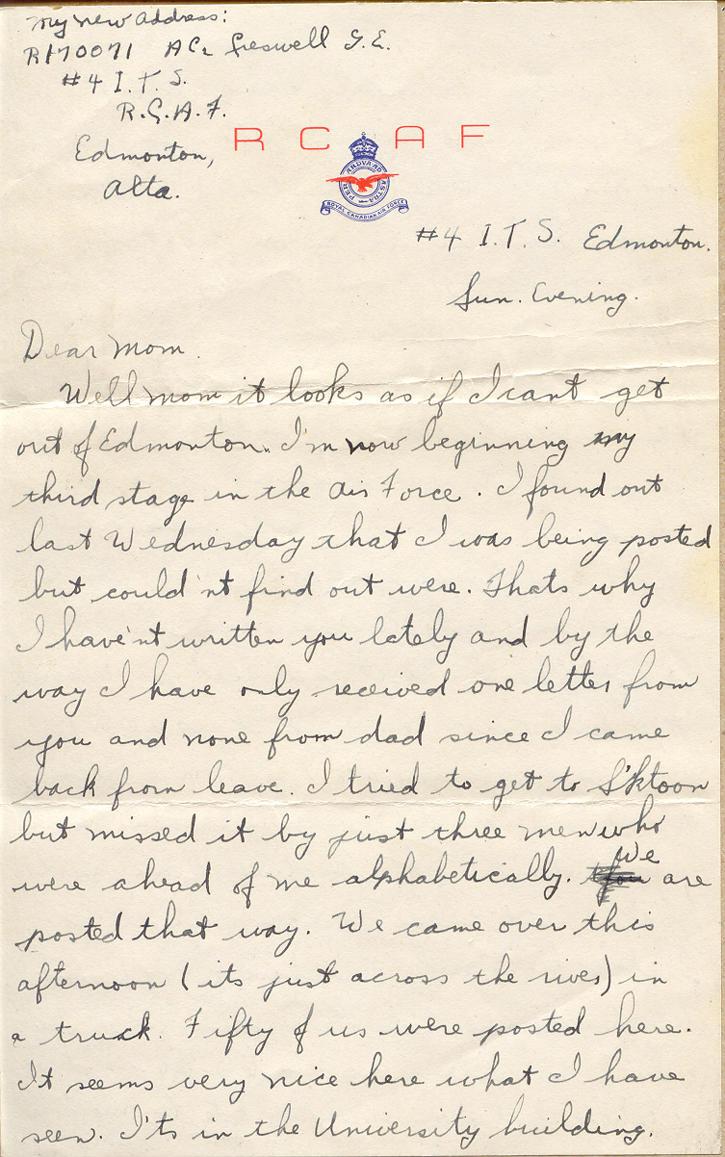 My new address:
R170071 AC2 Creswell G.E.
#4 I.T.S.
R.C.A.F.
Edmonton,
Alta.
R C A F
PER ARDVA AD ASTRA
ROYAL CANADIAN AIR FORCE
#4 I.T.S. Edmonton.
Sun. Evening.
Dear Mom.
Well mom it looks as if I cant get
out of Edmonton. I'm now beginning my
third stage in the Air Force. I found out
last Wednesday that I was being posted
but could'nt find out were. Thats why
I have'nt written you lately and by the
way I have only received one letter from
you and none from dad since I came
back from leave. I tried to get to S'ktoon
but missed it by just three men who
were ahead of me alphabetically. We are
posted that way. We came over this
afternoon (its just across the river) in
a truck. Fifty of us were posted here.
It seems very nice here what I have
seen. I'ts in the University building.